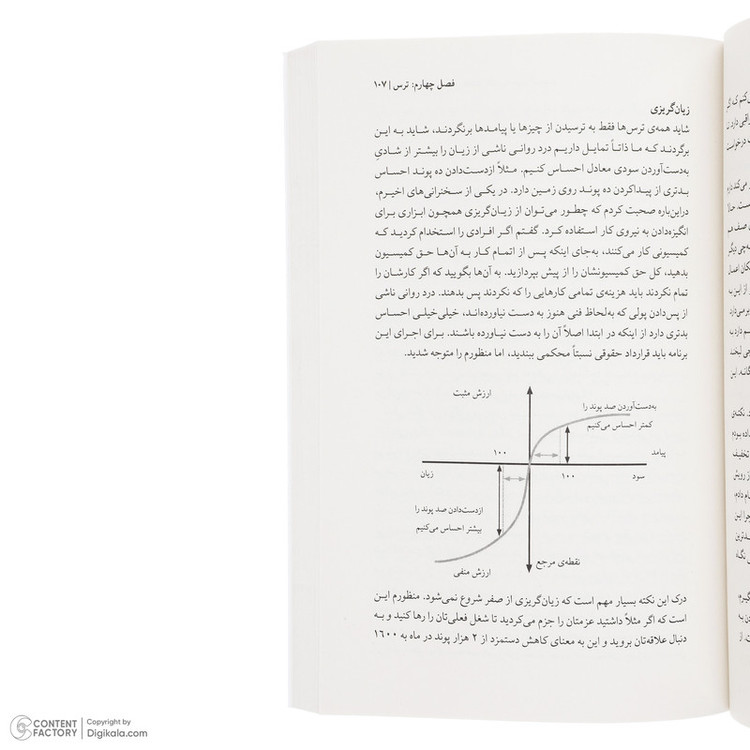 فصل چهارم: ترس | ۱۰۷
زیان‌گریزی
شاید همه‌ی ترس‌ها فقط به ترسیدن از چیزها یا پیامدها برنگردند، شاید به این
برگردند که ما ذاتاً تمایل داریم درد روانی ناشی از زیان را بیشتر از شادیِ
به‌دست‌آوردن سودی معادل احساس کنیم. مثلاً ازدست‌دادن ده پوند احساس
بدتری از پیداکردن ده پوند روی زمین دارد. در یکی از سخنرانی‌های اخیرم،
دراین‌باره صحبت کردم که چطور می‌توان از زیان‌گریزی همچون ابزاری برای
انگیزه‌دادن به نیروی کار استفاده کرد. گفتم اگر افرادی را استخدام کردید که
کمیسیونی کار می‌کنند، به‌جای اینکه پس از اتمام کار به آن‌ها حق کمیسیون
بدهید، کل حق کمیسیونشان را از پیش بپردازید. به آن‌ها بگویید که اگر کارشان را
تمام نکردند باید هزینه‌ی تمامی کارهایی را که نکردند پس بدهند. درد روانی ناشی
از پس‌دادن پولی که به‌لحاظ فنی هنوز به دست نیاورده‌اند، خیلی‌خیلی احساس
بدتری دارد از اینکه در ابتدا اصلاً آن را به دست نیاورده باشند. برای اجرای این
برنامه باید قرارداد حقوقی نسبتاً محکمی ببندید، اما منظورم را متوجه شدید.
ارزش مثبت
به‌دست‌آوردن صد پوند را
کمتر احساس می‌کنیم
پیامد
۱۰۰
زیان
سود
۱۰۰
ازدست‌دادن صد پوند را
بیشتر احساس می‌کنیم
نقطه‌ی مرجع
ارزش منفی
درک این نکته بسیار مهم است که زیان‌گریزی از صفر شروع نمی‌شود. منظورم این
است که اگر مثلاً داشتید عزمتان را جزم می‌کردید تا شغل فعلی‌تان را رها کنید و به
دنبال علاقه‌تان بروید و این به معنای کاهش دستمزد از ۲ هزار پوند در ماه به ۱۶۰۰
CONTENT FACTORY
Copyright by
Digikala.com